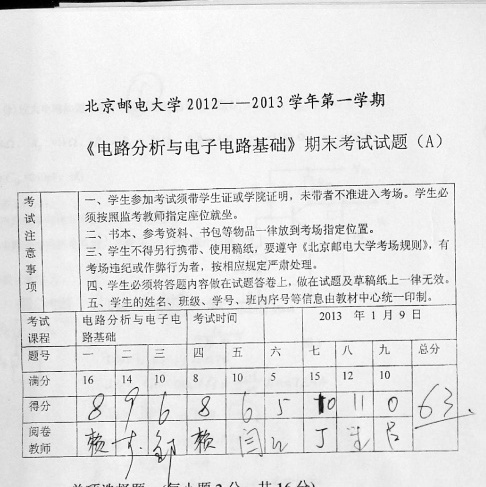 北京邮电大学 2012——2013 学年第一学期
《电路分析与电子电路基础》期末考试试题（A）
考试注意事项
一、学生参加考试须带学生证或学院证明，未带者不准进入考场。学生必
须按照监考教师指定座位就坐。
二、书本、参考资料、书包等物品一律放到考场指定位置。
三、学生不得另行携带、使用稿纸，要遵守《北京邮电大学考场规则》，有
考场违纪或作弊行为者，按相应规定严肃处理。
四、学生必须将答题内容做在试题答卷上，做在试题及草稿纸上一律无效。
五、学生的姓名、班级、学号、班内序号等信息由教材中心统一印制。
考试课程 电路分析与电子电路基础 考试时间 2013 年 1 月 9 日
题号 一 二 三 四 五 六 七 八 九 总分
满分 16 14 10 8 10 5 15 12 10
得分 8 9 6 8 6 5 10 11 0 63
阅卷教师 赖 赖 闫 丁